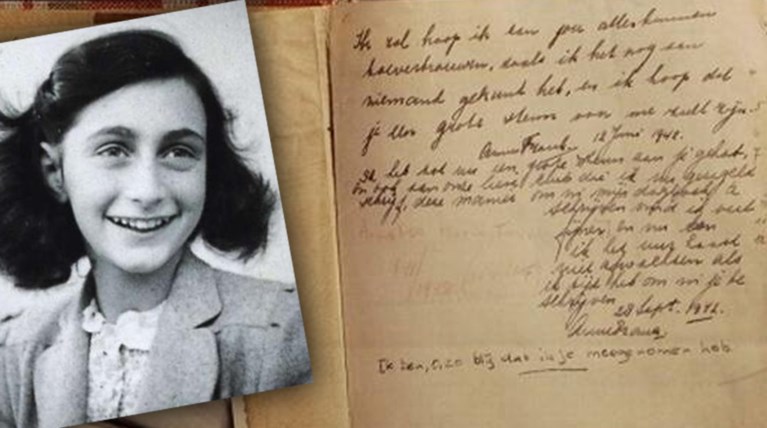 Ik zal hoop ik aan jou alles kunnen
toevertrouwen, zoals ik het nog aan
niemand gekund heb, en ik hoop dat
je een grote steun voor me zult zijn.
Anne Frank. 12 Juni 1942.
Ik heb tot nu een grote steun aan je gehad,
en ook aan onze lieve club die ik nu geregeld
schrijf, deze manier om in mijn dagboek te
schrijven vind ik veel
fijner en nu kan
ik het uur haast
niet afwachten als
ik tijd heb om in je te
schrijven
28 Sept. 1942.
Anne Frank
Ik ben, o, zo blij dat ik je meegenomen heb